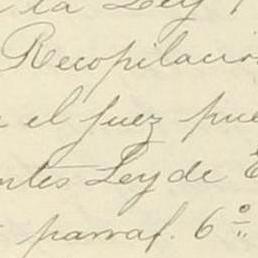 la Ley
Recopilación
el juez pue
ntes Ley de E
parraf. 6º